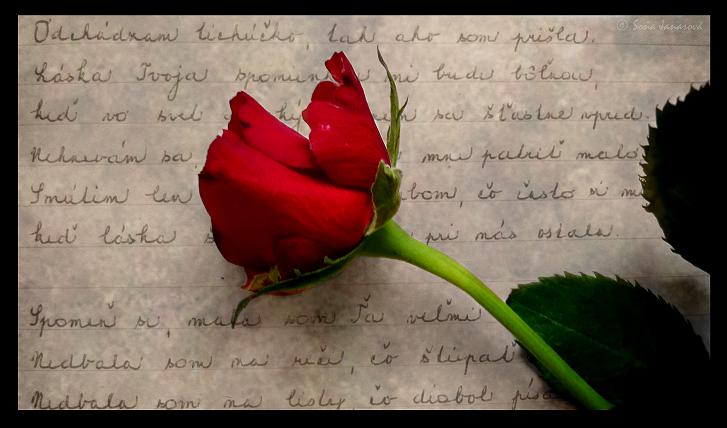 © Soňa Janasová
Odchádzam tichúčko, tak ako som prišla.
Láska Tvoja mi bude bôľnou,
keď vo svet sa šťastne vpred.
Nehnevám sa, mne patriť malo
Smútim len čo často si
keď láska pri nás ostala.
Spomeň si, mala som Ťa veľmi
Nedbala som na reči, čo štípať
Nedbala som na listy, čo diabol